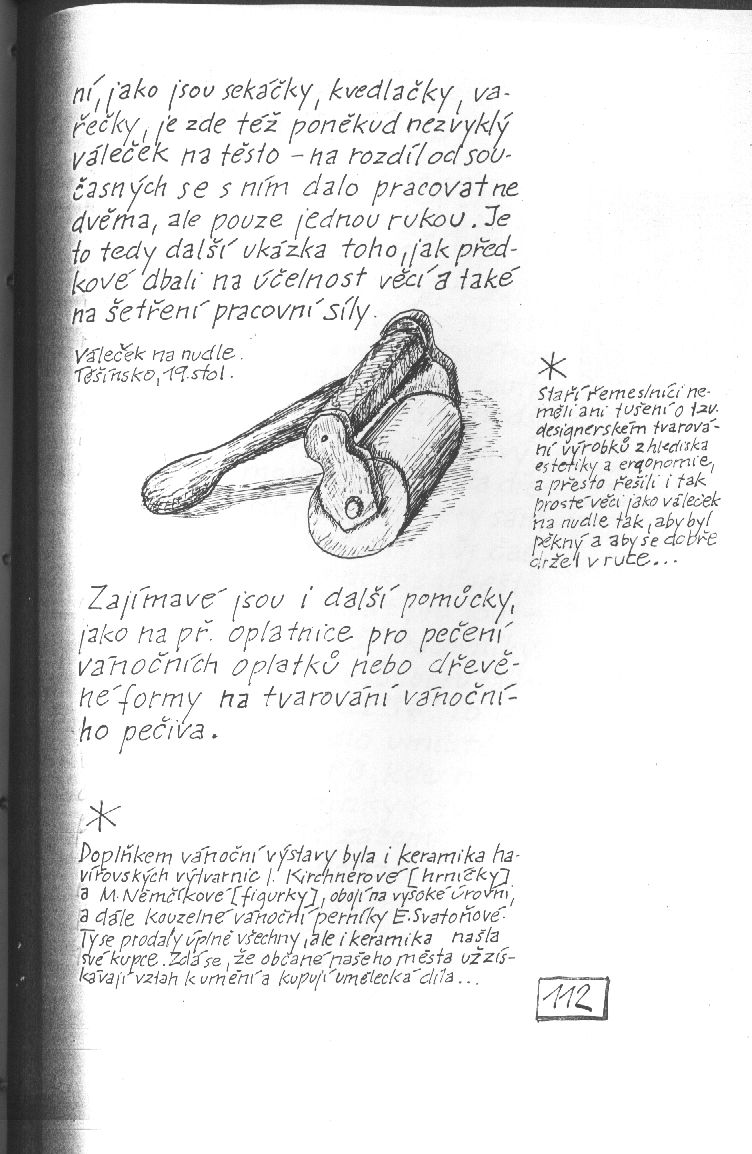 ní, jako jsou sekáčky, kvedlačky, va-
řečky, je zde též poněkud nezvyklý
váleček na těsto – na rozdíl od sou-
časných se s ním dalo pracovat ne
dvěma, ale pouze jednou rukou. Je
to tedy další ukázka toho, jak před-
kové dbali na účelnost věcí a také
na šetření pracovní síly.
Váleček na nudle.
Těšínsko, 19. stol.
*
Staří řemeslníci ne-
měli ani tušení o tzv.
designerském tvarová-
ní výrobků z hlediska
estetiky a ergonomie,
a přesto řešili i tak
prosté věci jako váleček
na nudle tak, aby byl
pěkný a aby se dobře
držel v ruce...
Zajímavé jsou i další pomůcky,
jako např. oplatnice pro pečení
vánočních oplatků nebo dřevě-
né formy na tvarování vánoční-
ho pečiva.
*
Doplňkem vánoční výstavy byla i keramika ha-
vířovských výtvarnic J. Kirchnerové [hrníčky]
a M. Němčíkové [figurky], obojí na vysoké úrovni,
a dále kouzelné vánoční perníky E. Svatoňové.
Ty se prodaly úplně všechny, ale i keramika našla
své kupce. Zdá se, že občané našeho města už zís-
kávají vztah k umění a kupují umělecká díla...
112